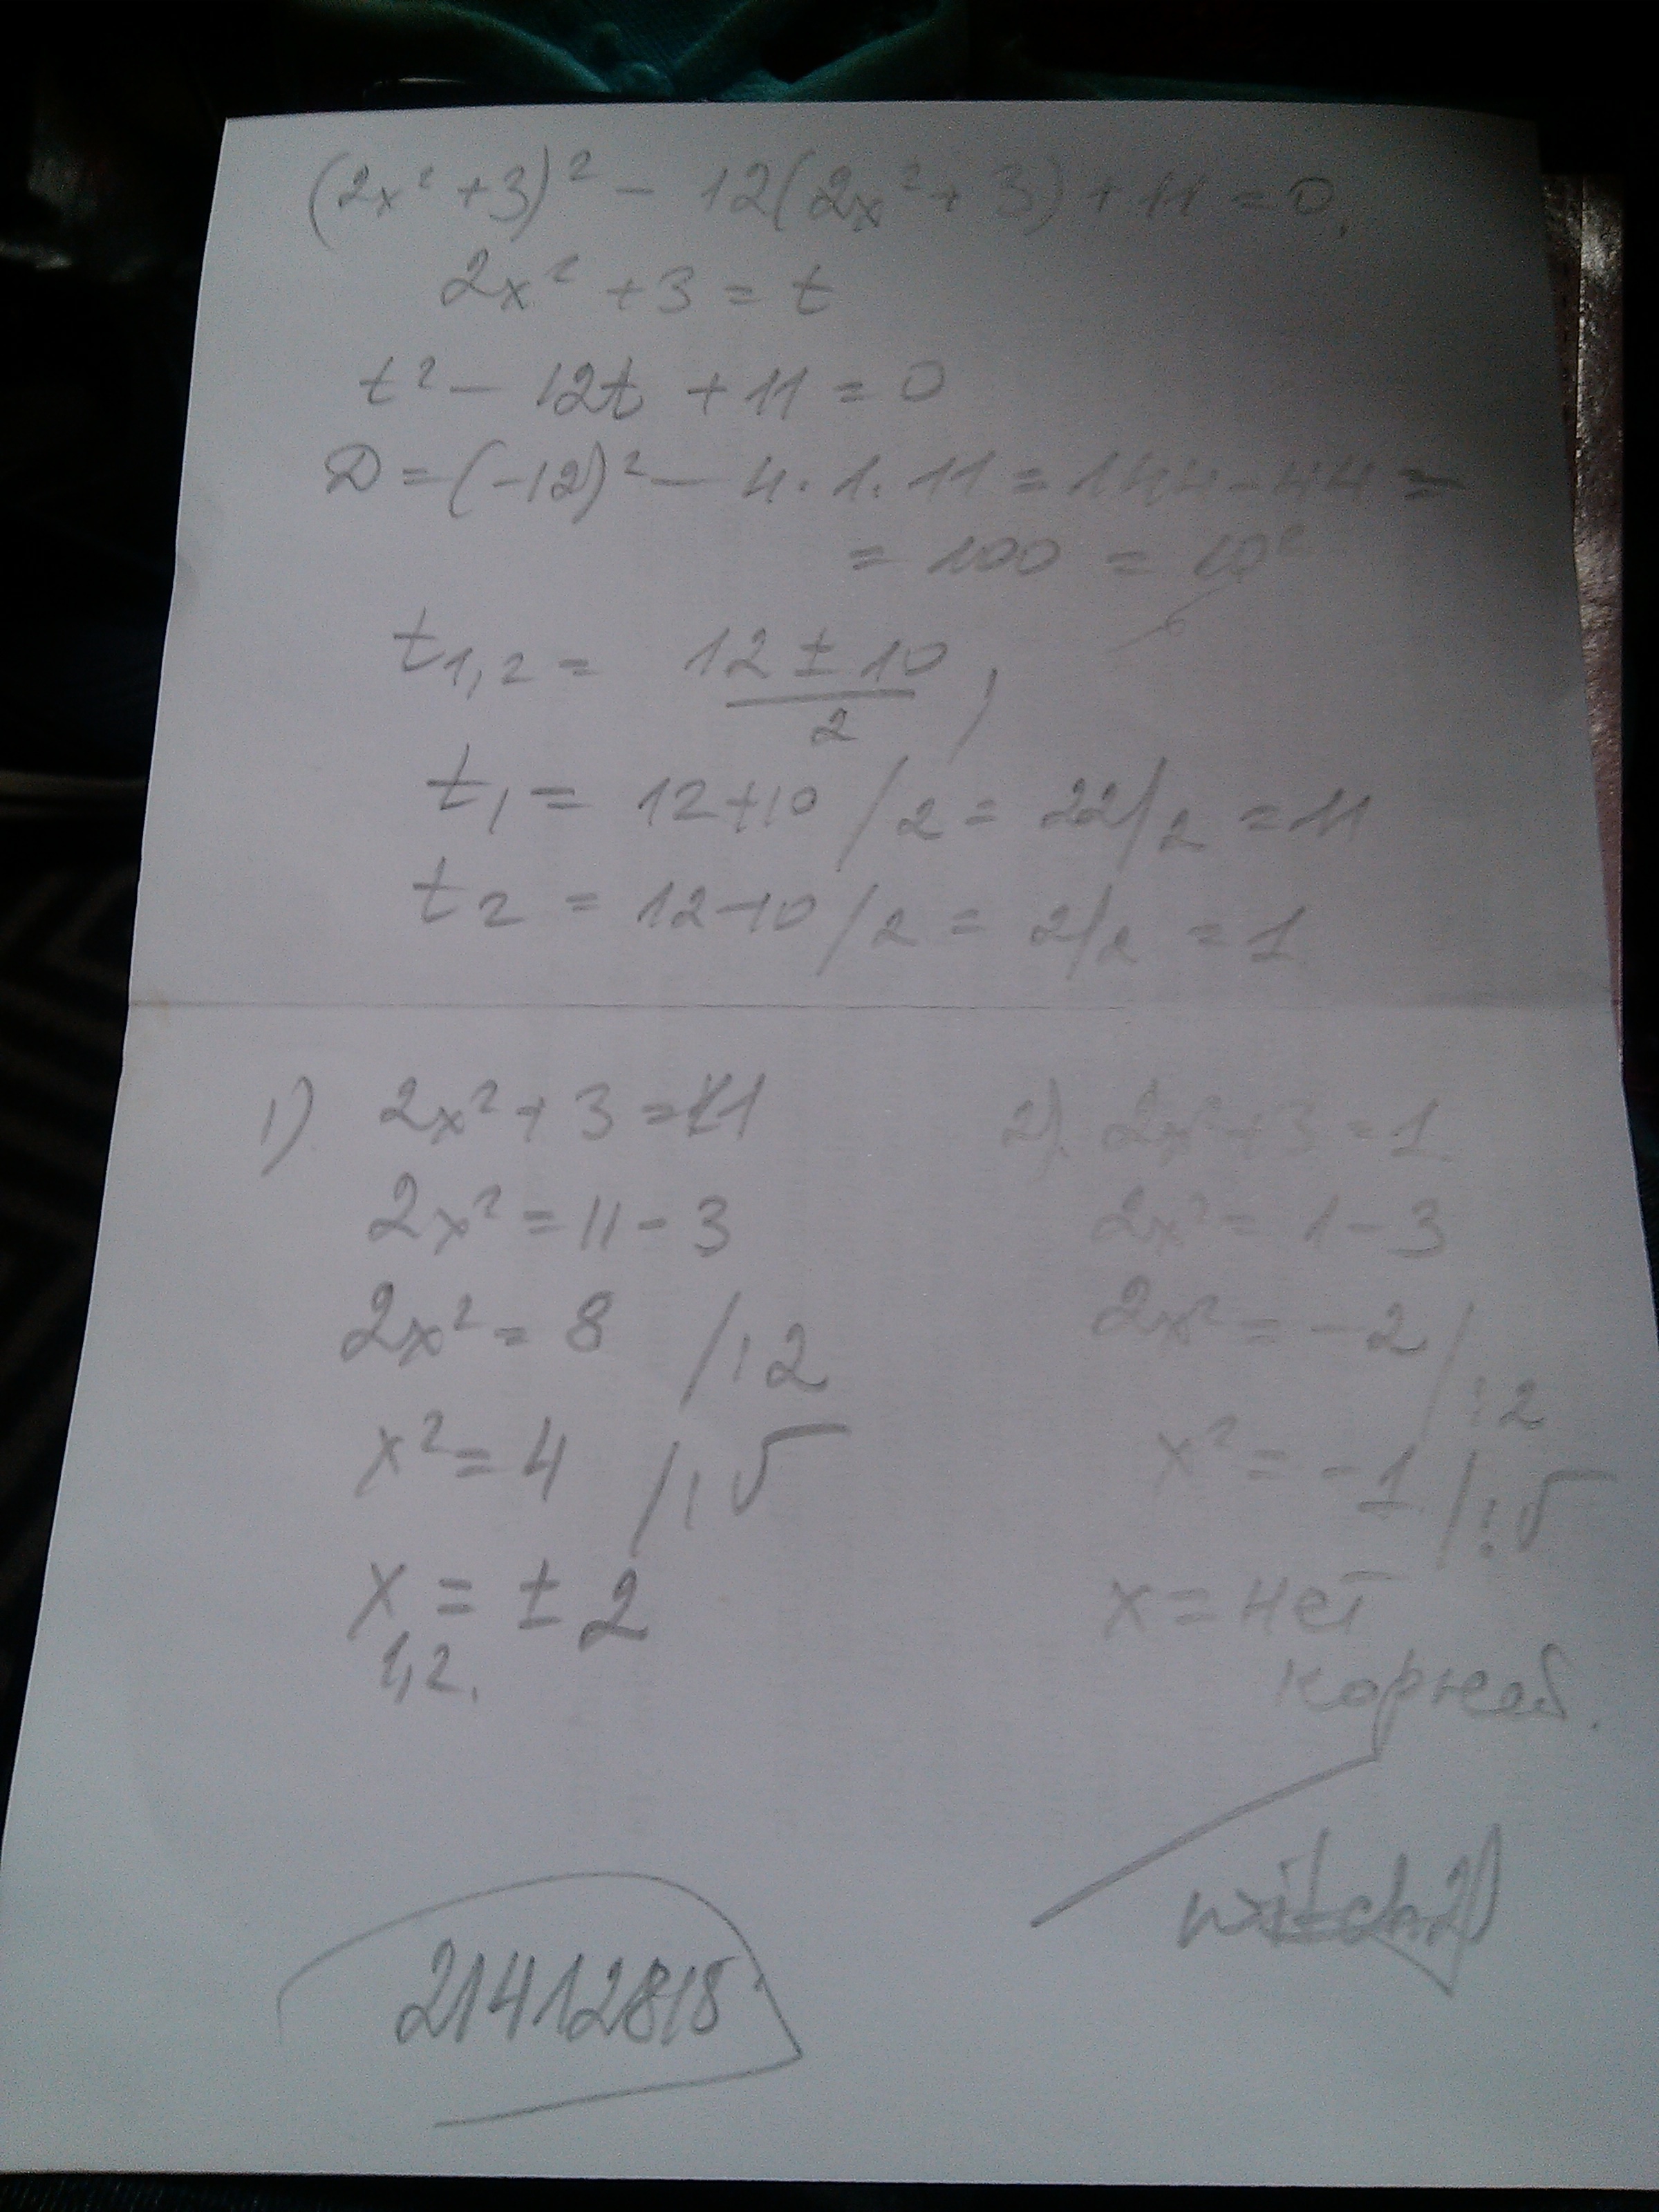 (2x² + 3)² - 12(2x² + 3) + 11 = 0,
2x² + 3 = t
t² - 12t + 11 = 0
D = (-12)² - 4 · 1 · 11 = 144 - 44 =
= 100 = 10²
t1,2 = (12 ± 10)/2 ,
t1 = 12+10 / 2 = 22/2 = 11
t2 = 12-10 / 2 = 2/2 = 1
1) 2x² + 3 = 11
2x² = 11 - 3
2x² = 8 / : 2
x² = 4 / : √
x1,2. = ± 2
2). 2x² + 3 = 1.
2x² = 1 - 3
2x² = -2 / : 2
x² = -1 / : √
x = нет
корней.
witch20
21412818